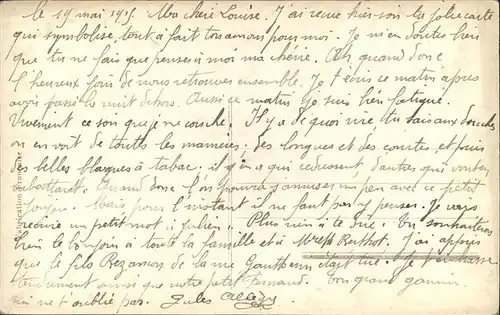 le 19 mai 1915. Ma cheri Louise. J'ai recue hier soir ta jolie carte
qui symbolise tout à fait ton amour pour moi. Je m'en doutes bien
que tu ne fais que penser à moi ma chérie. Ah quand donc
l'heureux jour de nous retrouver ensemble. Je t'écris ce matin apres
avoir passé la nuit dehors. Aussi ce matin je suis bien fatigué.
Vivement ce soir que je me couche. Il y a de quoi rire tu sais aux douches
on en voit de toutes les manieres. des longues et des courtes et puis
des belles blagues à tabac. il y en a qui redressent, d'autres qui
Quand donc l'on pourra s'amuser un peu avec ce petit
joujou. Mais pour l'instant il ne faut pas y penser. Je vais
écrire un petit mot à Julien. Plus rien à te dire. En souhaitant
bien le bonjour à toute la famille et à
que le fils de la rue était tué. Je t'embrasse
tendrement ainsi que notre petit Fernand. Ton grand gamin
qui ne t'oublie pas. Jules